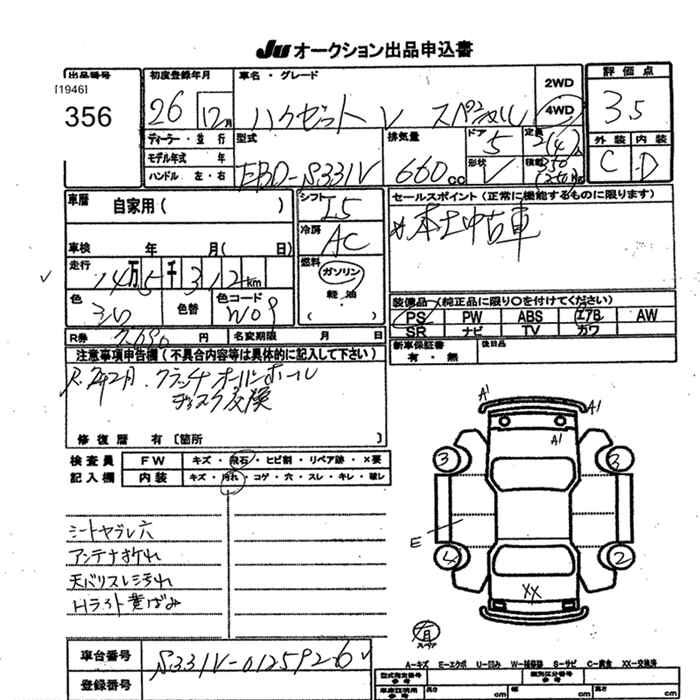 JU オークション出品申込書
出品番号
[1946]
356
初度登録年月
26 年 12月
車名・グレード
ハイゼット V スペシャル
2WD
4WD
評価点
3.5
外装 内装
C D
ディーラー・並行
モデル年式 年
ハンドル 左・右
型式
EBD-S331V
排気量
660 cc
ドア
5
形状
V
定員
2(4)人
積載
350
(250)kg
車歴
自家用( )
車検 年 月( 日)
走行
14万5千312km
色
シロ
色替
色コード
W09
シフト
I5
冷房
AC
燃料
ガソリン
軽油
セールスポイント(正常に機能するものに限ります)
本土中古車
装備品(純正品に限り○を付けてください)
PS PW ABS エアB AW
SR ナビ TV カワ
新車保証書
有・無
後日品
R券 7,690 円
名変期限 月 日
注意事項申告欄(不具合内容等は具体的に記入して下さい)
クラッチオーバーホール
ディスク交換
修復歴 有 〔箇所 〕
検査員
記入欄
FW キズ・飛石・ヒビ割・リペア跡・×要
内装 キズ・汚れ・コゲ・穴・スレ・キレ・破レ
シートヤブレ穴
アンテナオレ
天バリスレミ汚れ
Hライト黄ばみ
A1
A1
A1
3
3
E
4
2
XX
有
スペア
A-キズ E-エクボ U-凹み W-補修跡 S-サビ C-腐食 XX-交換済
車台番号
S331V-0125926
登録番号
型式指定番号
類別区分番号
長さ cm
幅 cm
高さ cm